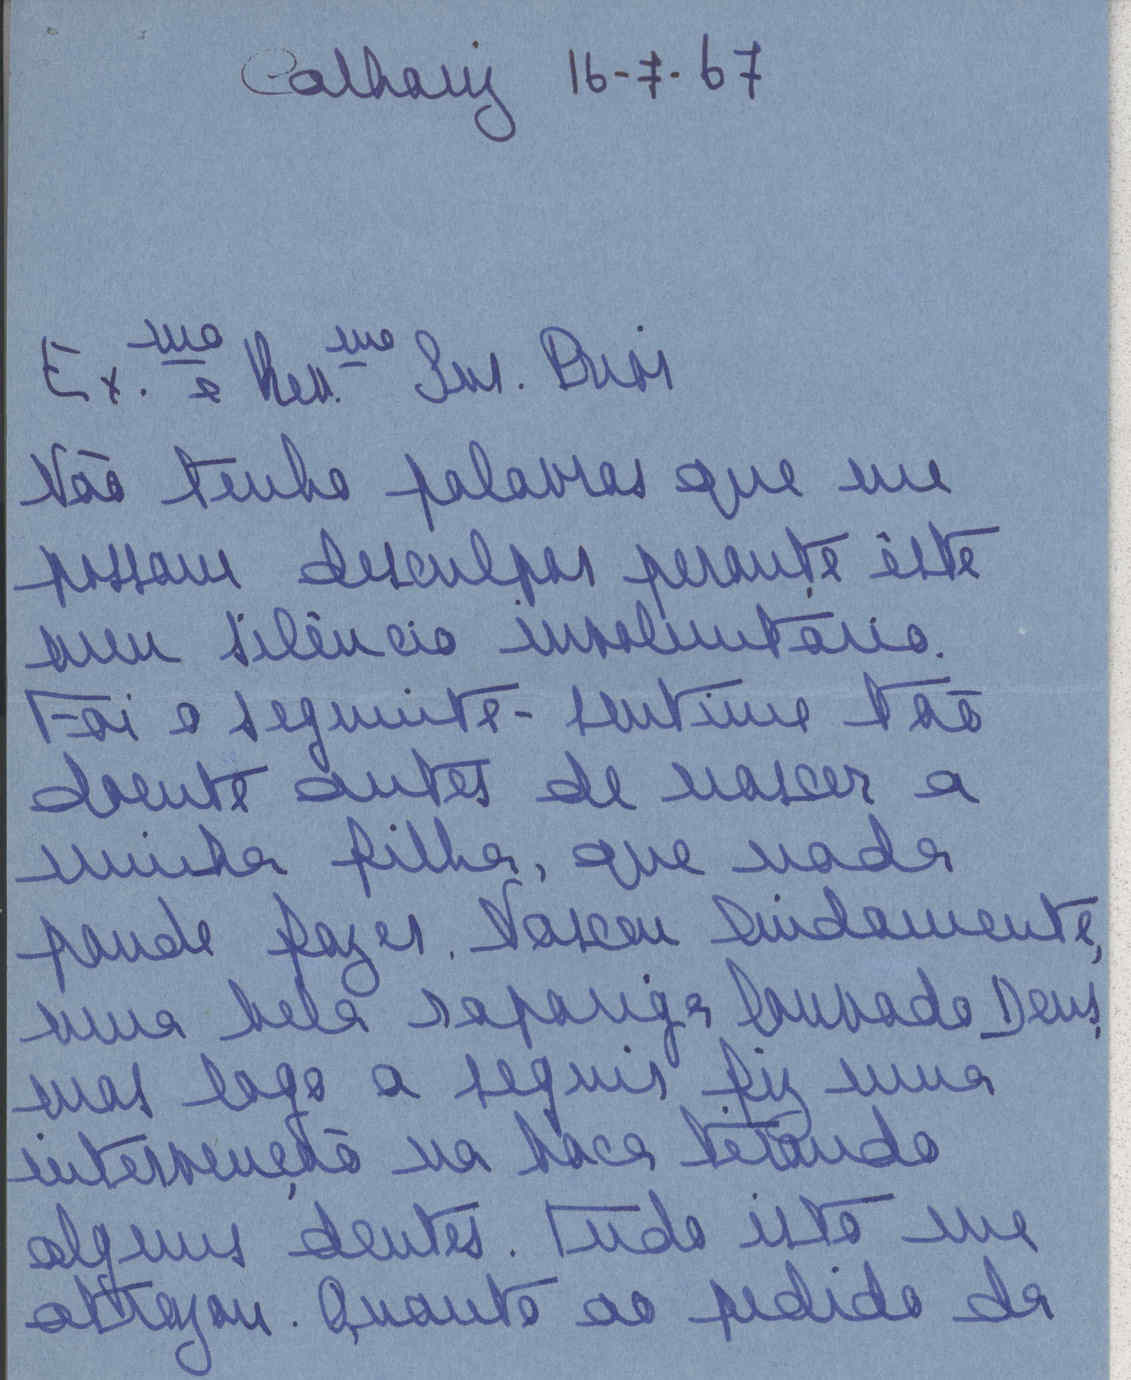 Calhariz 16-7-67
Ex.mo e Rev.mo Snr. Prior
Não tenho palavras que me
possam desculpar perante êste
meu silêncio involuntário.
Foi o seguinte - sentime tão
doente antes de nascer a
minha filha, que nada
poude fazer. Nasceu lindamente,
uma bela rapariga louvado Deus,
mas logo a seguir fiz uma
intervenção na boca tirando
alguns dentes. Tudo isto me
atrazou. Quanto ao pedido da